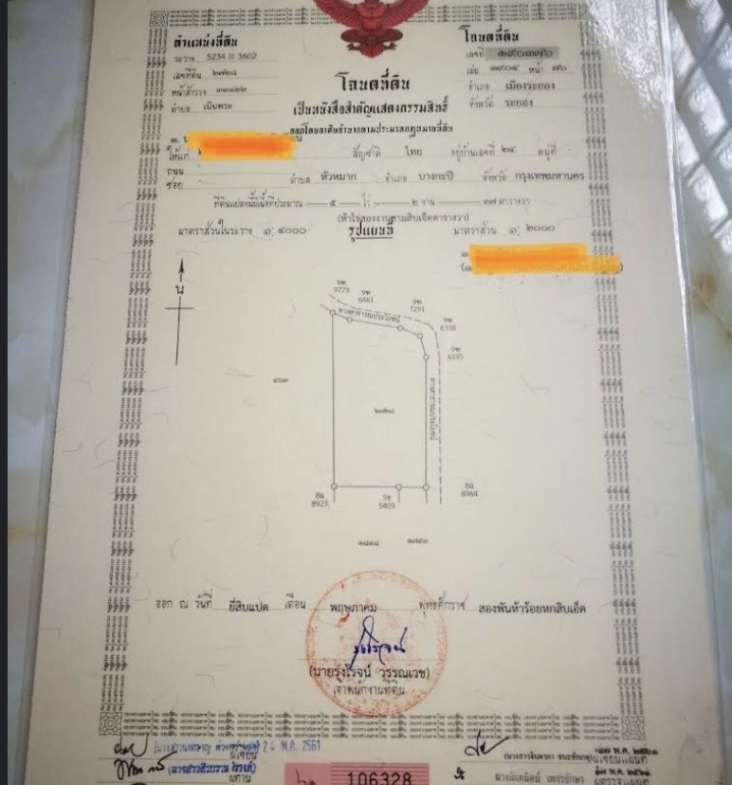 ตำแหน่งที่ดิน
ระวาง 5234 III 3602
เลขที่ดิน ๒๗๒๘
หน้าสำรวจ
ตำบล เนินพระ
โฉนดที่ดิน
เลขที่
เล่ม หน้า ๗๖
อำเภอ เมืองระยอง
จังหวัด ระยอง
โฉนดที่ดิน
เป็นหนังสือสำคัญแสดงกรรมสิทธิ์
ออกโดยอาศัยอำนาจตามประมวลกฎหมายที่ดิน
ให้แก่ สัญชาติ ไทย อยู่บ้านเลขที่ ๒๔ หมู่ที่
ถนน
ซอย ตำบล หัวหมาก อำเภอ บางกะปิ จังหวัด กรุงเทพมหานคร
ที่ดินแปลงนี้มีเนื้อที่ประมาณ ๕ ไร่ ๒ งาน ๓๗ ตารางวา
(ห้าไร่สองงานสามสิบเจ็ดตารางวา)
มาตราส่วนในระวาง ๑: ๔๐๐๐ รูปแผนที่ มาตราส่วน ๑: ๒๐๐๐
น
9773
6461
7291
6338
6395
ทางสาธารณประโยชน์
ทางสาธารณประโยชน์
๒๗๒๘
8923
5409
8964
ออก ณ วันที่ ยี่สิบแปด เดือน พฤษภาคม พุทธศักราช สองพันห้าร้อยหกสิบเอ็ด
(นายรุ่งโรจน์ วรรณเวช)
เจ้าพนักงานที่ดิน
24 พ.ค. 2561
106328